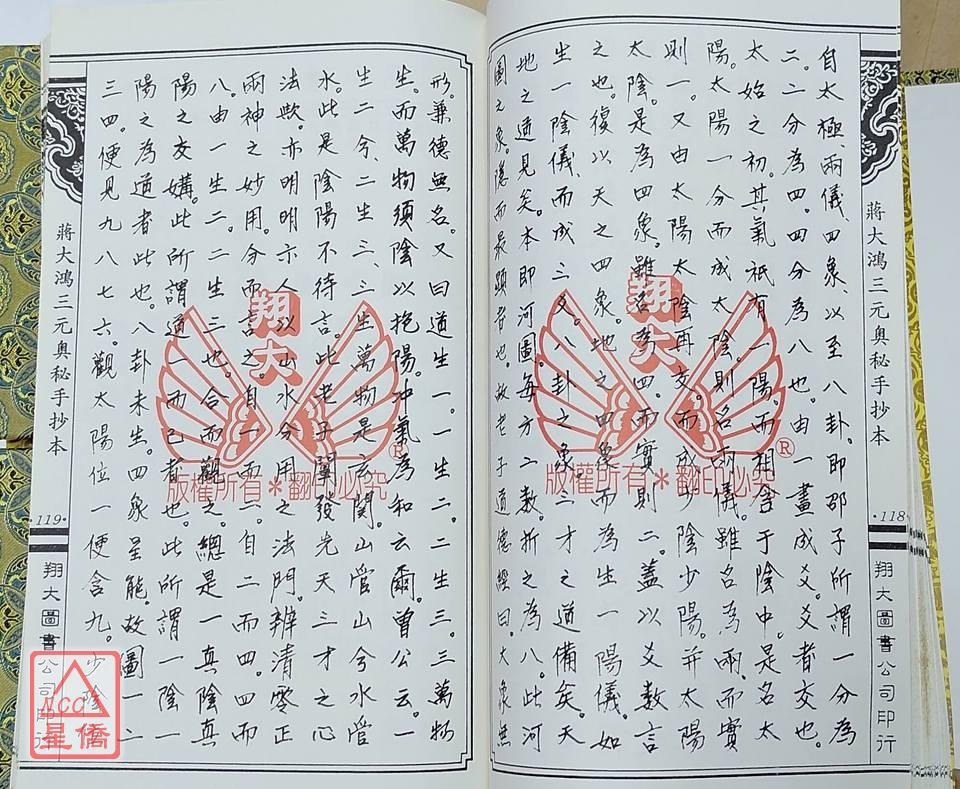 自太極、兩儀、四象、以至八卦。即邵子所謂一分為
二。二分為四。四分為八也。由一畫成爻。爻者交也。
太始之初。其氣祇有一陽。而相含于陰中。是名太
陽。太陽一分而成太陰。則名兩儀。雖名為兩。而實
則一。又由太陽太陰再交。而成少陰少陽。并太陽
太陰。是為四象。雖名為四。而實則二。蓋以爻數言
之也。復以天之四象。地之四象。而為生一陽儀。如
生一陰儀。而成三爻。八卦之象。三才之道備矣。天
地之道見矣。本即河圖。每方二數。折之為八。此河
圖之象。隱而最顯者也。故老子道德經曰。大象無
形。兼德無名。又曰道生一。一生二。二生三。三萬物
生。而萬物須陰以抱陽。冲氣為和云爾。曾公云。一
生二兮、二生三、三生萬物是玄關。山管山兮水管
水。此是陰陽不待言。此老子闡發先天三才之心
法歟。亦明明示人以山水分用之法門。辨清零正
兩神之妙用。分而言之。自一而二。自二而四。四而
八。由一生二。二生三也。合而觀之。總是一真陰真
陽之交媾。此所謂道一而已者也。此所謂一陰一
陽之為道者此也。八卦未生。四象呈能。故圖一二
三四。便見九八七六。觀太陽位一便含九。少陰
蔣大鴻三元奧秘手抄本
·118·
翔大圖書公司印行
蔣大鴻三元奧秘手抄本
·119·
翔大圖書公司印行
翔大
®
版權所有＊翻印必究
翔大
®
版權所有＊翻印必究
NCC
星僑